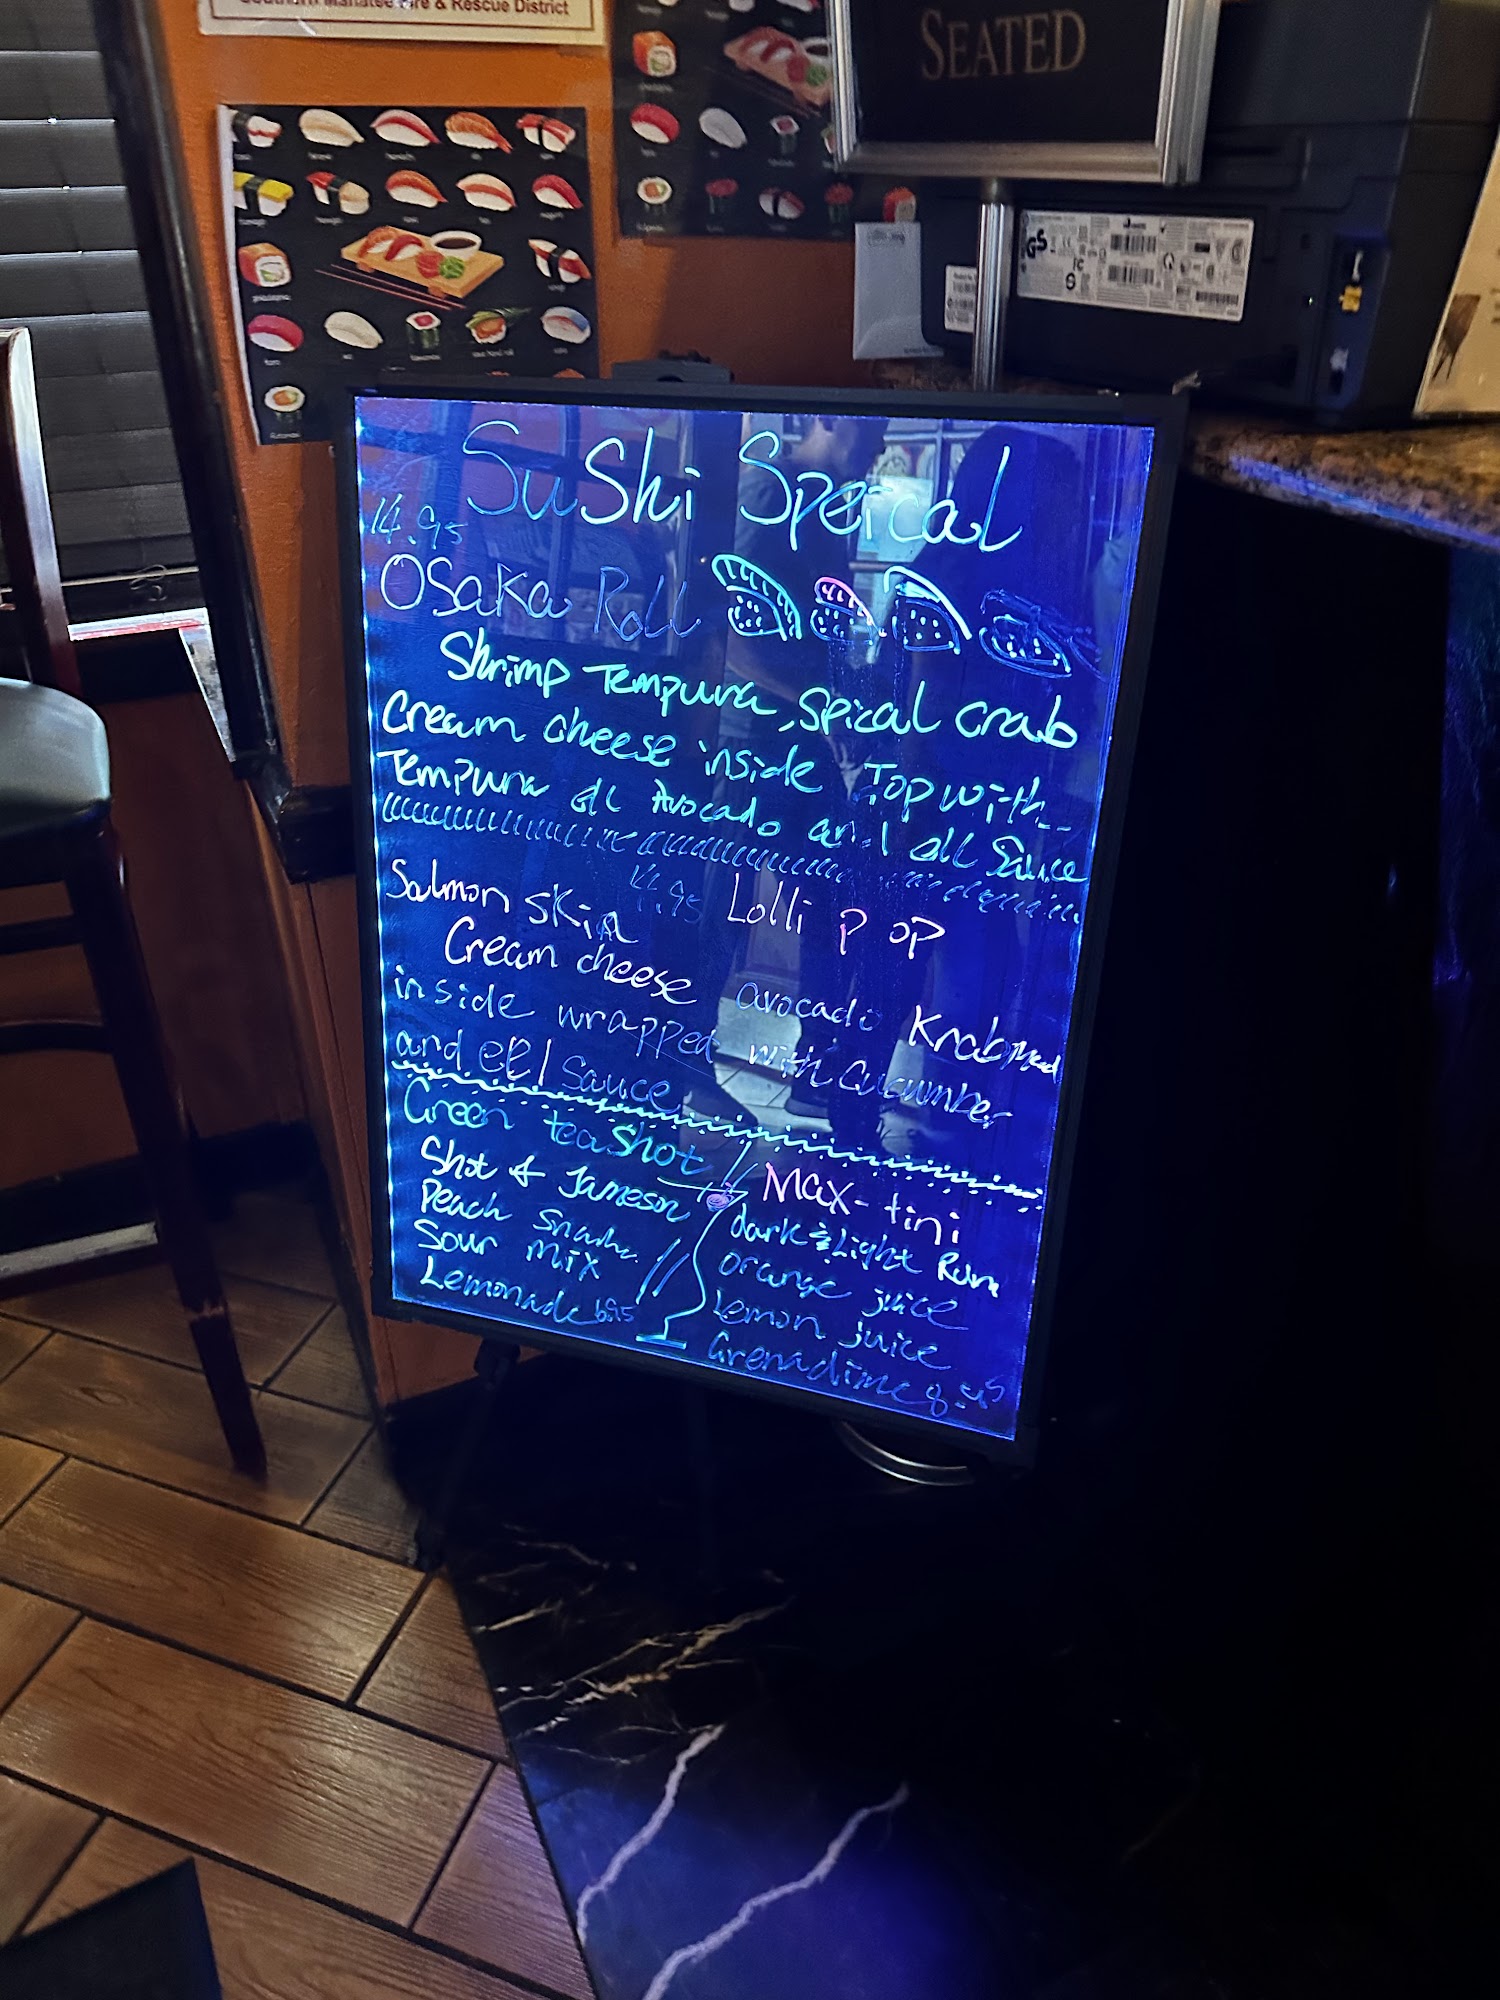 Southern Manatee Fire & Rescue District
SEATED
Sushi Speical
14.95
Osaka Roll
Shrimp Tempura, Spical crab
Cream cheese inside Top with
Tempura ell Avocado and ell Sauce
14.95
Salmon skin Lolli pop
Cream cheese avocado Krab meat
inside wrapped with cucumber
and ell sauce
Green tea shot
Shot of Jameson
Peach Snaha.
Sour mix
Lemonade 6.95
Max-tini
dark & Light Rum
orange juice
Lemon juice
Grenadine 8.95